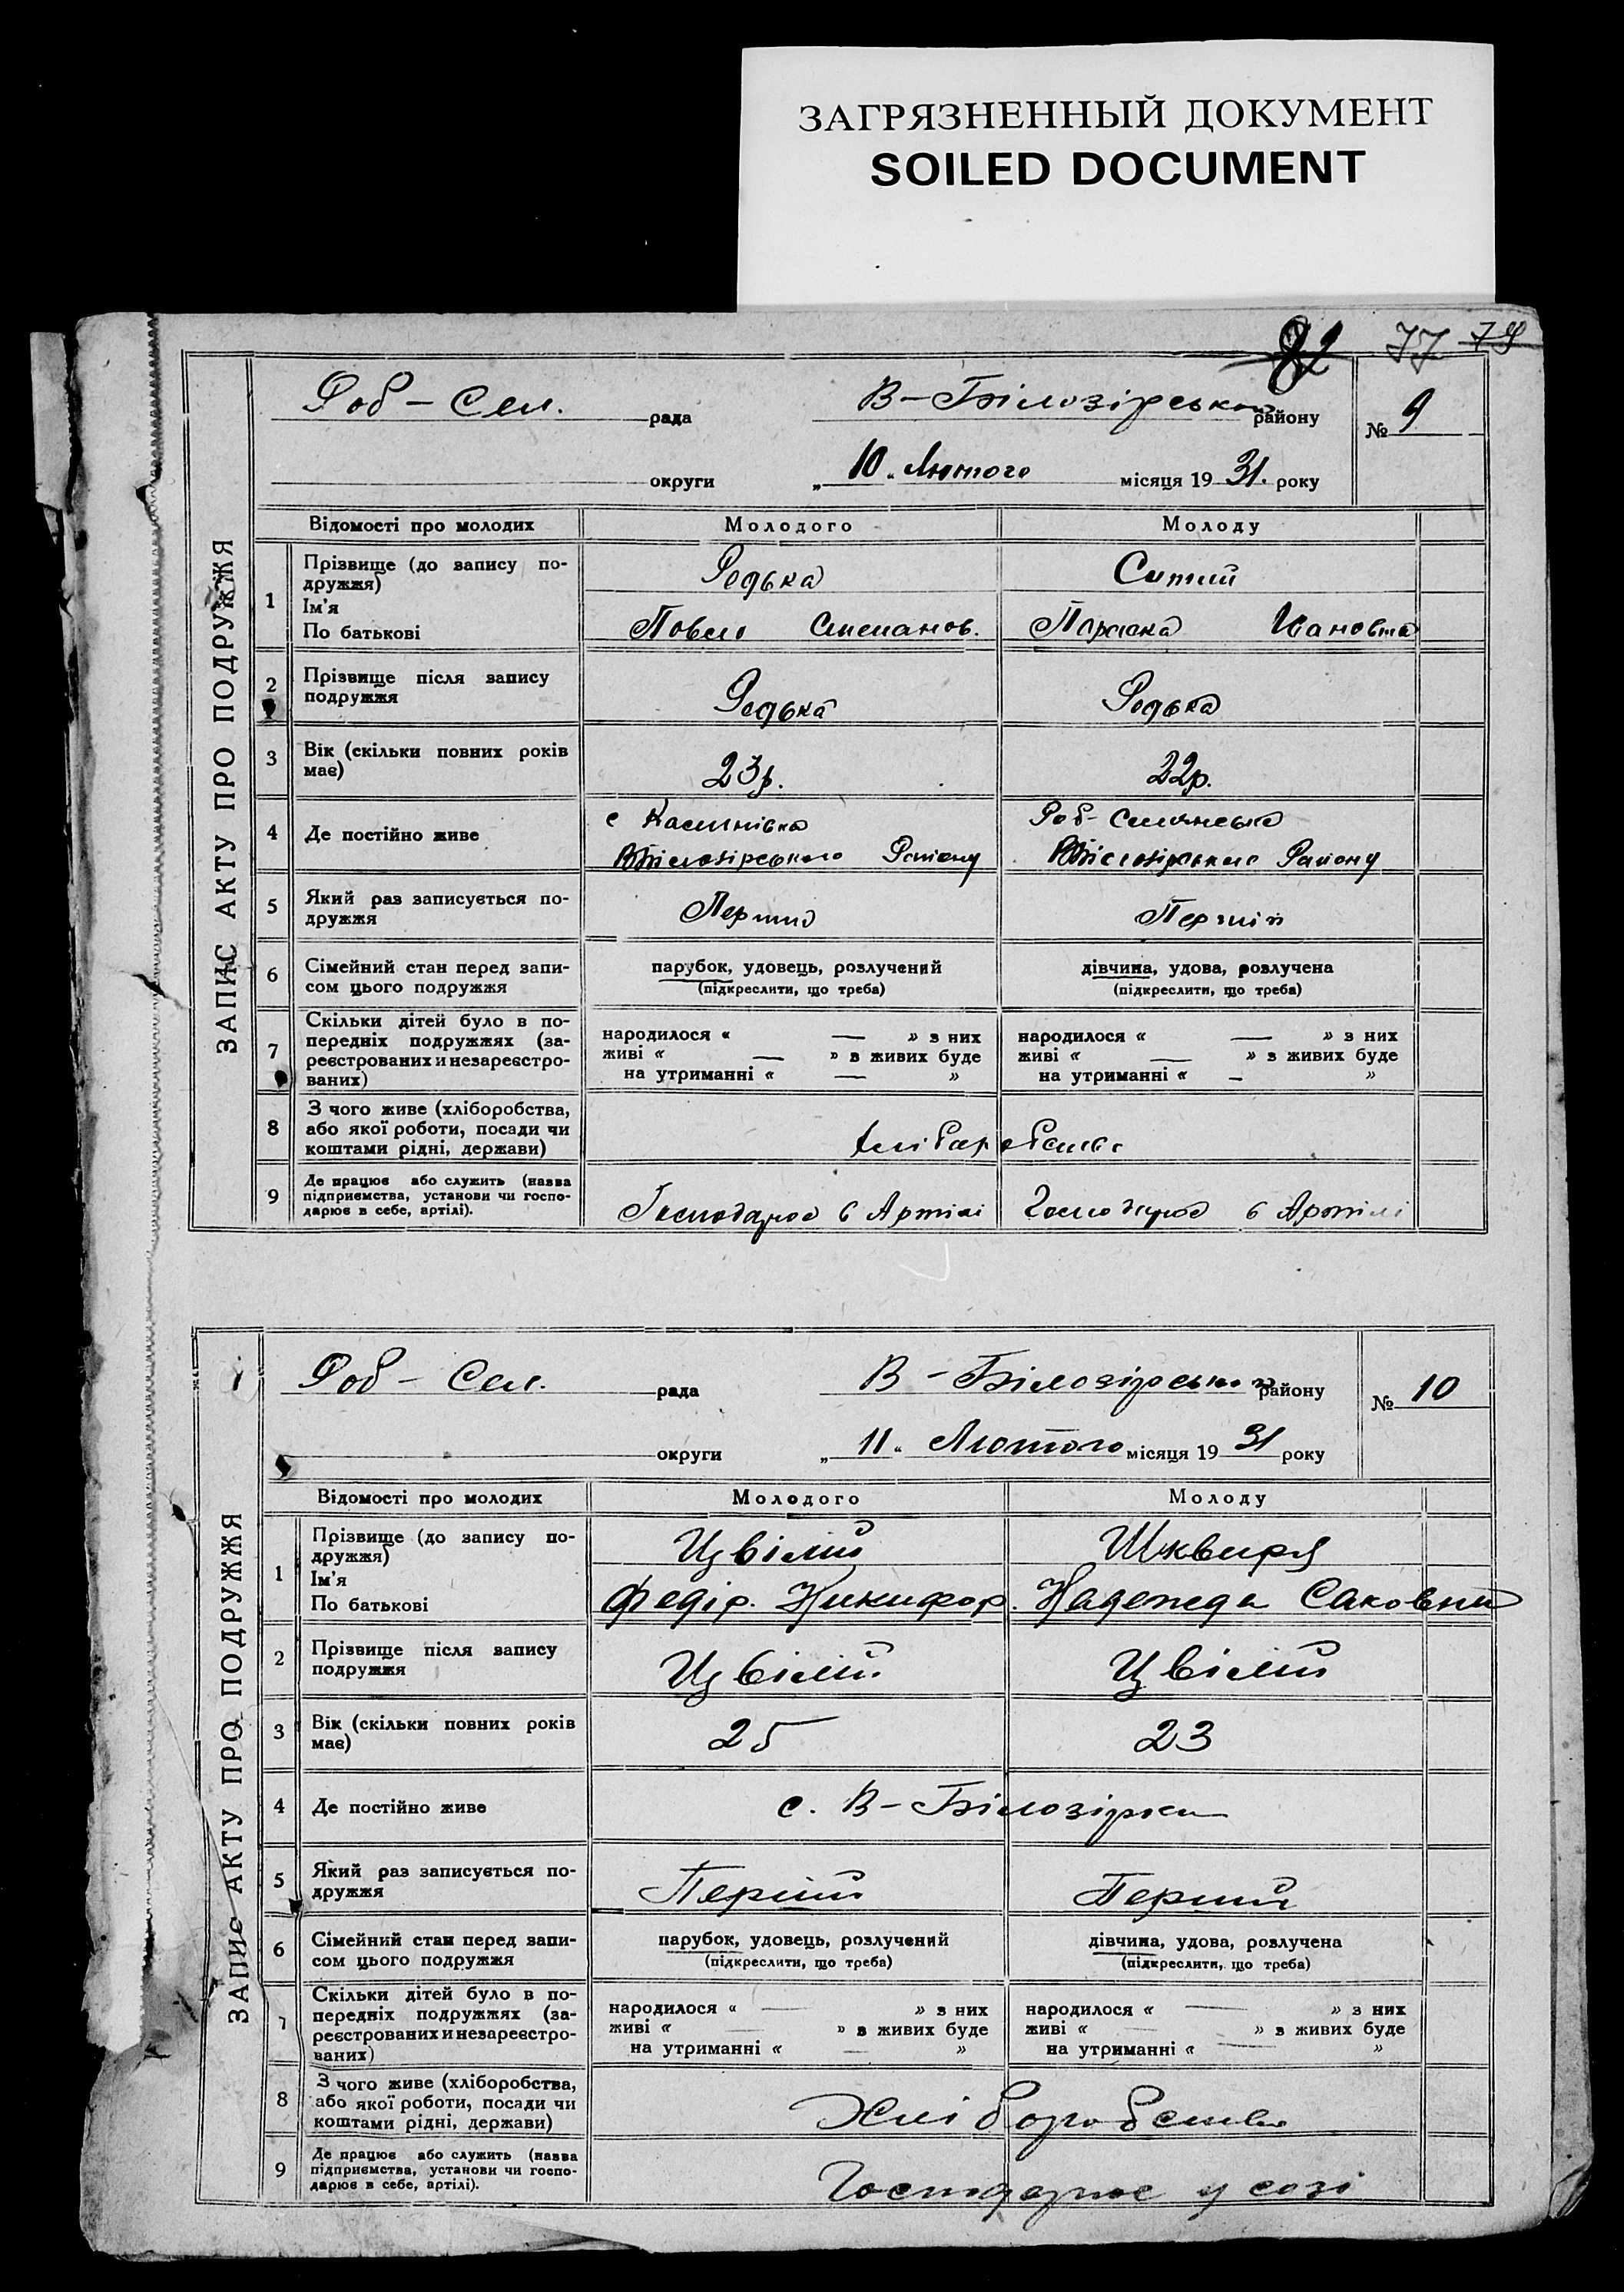 ЗАГРЯЗНЕННЫЙ ДОКУМЕНТ
SOILED DOCUMENT
77 79
ЗАПИС АКТУ ПРО ПОДРУЖЖЯ
Роб-Сел. рада В-Білозірського району № 9
округи „10" Лютого місяця 1931. року
Відомості про молодих Молодого Молоду
1 Прізвище (до запису по-
дружжя) Редька Ситий
Ім'я
По батькові Павло Степанов. Параска Івановна
2 Прізвище після запису
подружжя Редька Редька
3 Вік (скільки повних років
має) 23р. 22р.
4 Де постійно живе с Калинівка Роб-Селянська
ВБілозірського Району ВБілозірського Району
5 Який раз записується по-
дружжя Перший Перший
6 Сімейний стан перед запи-
сом цього подружжя
парубок, удовець, розлучений дівчина, удова, розлучена
(підкреслити, що треба) (підкреслити, що треба)
7 Скільки дітей було в по-
передніх подружжях (за-
реєстрованих и незареєстро-
ваних)
народилося « — » з них народилося « — » з них
живі « — » з живих буде живі « — » з живих буде
на утриманні « — » на утриманні « — »
8 З чого живе (хліборобства,
або якої роботи, посади чи
коштами рідні, держави)
9 Де працює або служить (назва
підприємства, установи чи госпо-
дарює в себе, артілі). Господарює в Артілі Господарює в Артілі
ЗАПИС АКТУ ПРО ПОДРУЖЖЯ
Роб-Сел. рада В-Білозірського району № 10
округи „11" Лютого місяця 1931 року
Відомості про молодих Молодого Молоду
1 Прізвище (до запису по-
дружжя) Цвілий Шквиря
Ім'я
По батькові Федір. Никифор. Надежда Саковна
2 Прізвище після запису
подружжя Цвілий Цвілий
3 Вік (скільки повних років
має) 25 23
4 Де постійно живе с. В-Білозірка
5 Який раз записується по-
дружжя Перший Перший
6 Сімейний стан перед запи-
сом цього подружжя
парубок, удовець, розлучений дівчина, удова, розлучена
(підкреслити, що треба) (підкреслити, що треба)
7 Скільки дітей було в по-
передніх подружжях (за-
реєстрованих и незареєстро-
ваних)
народилося « — » з них народилося « — » з них
живі « — » з живих буде живі « — » з живих буде
на утриманні « — » на утриманні « — »
8 З чого живе (хліборобства,
або якої роботи, посади чи
коштами рідні, держави) Хліборобство
9 Де працює або служить (назва
підприємства, установи чи госпо-
дарює в себе, артілі). Господарює у созі